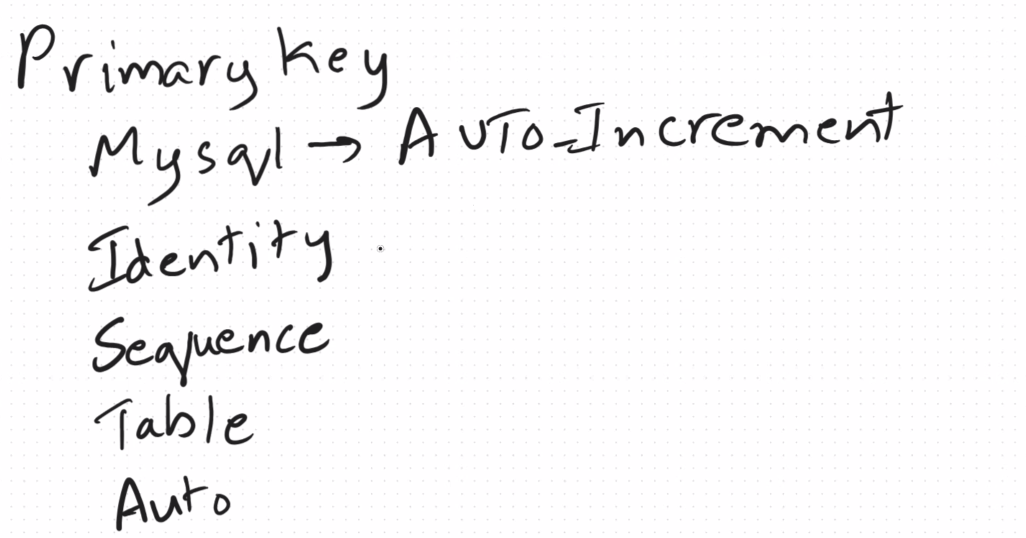 Primary Key
Mysql → Auto_Increment
Identity
Sequence
Table
Auto